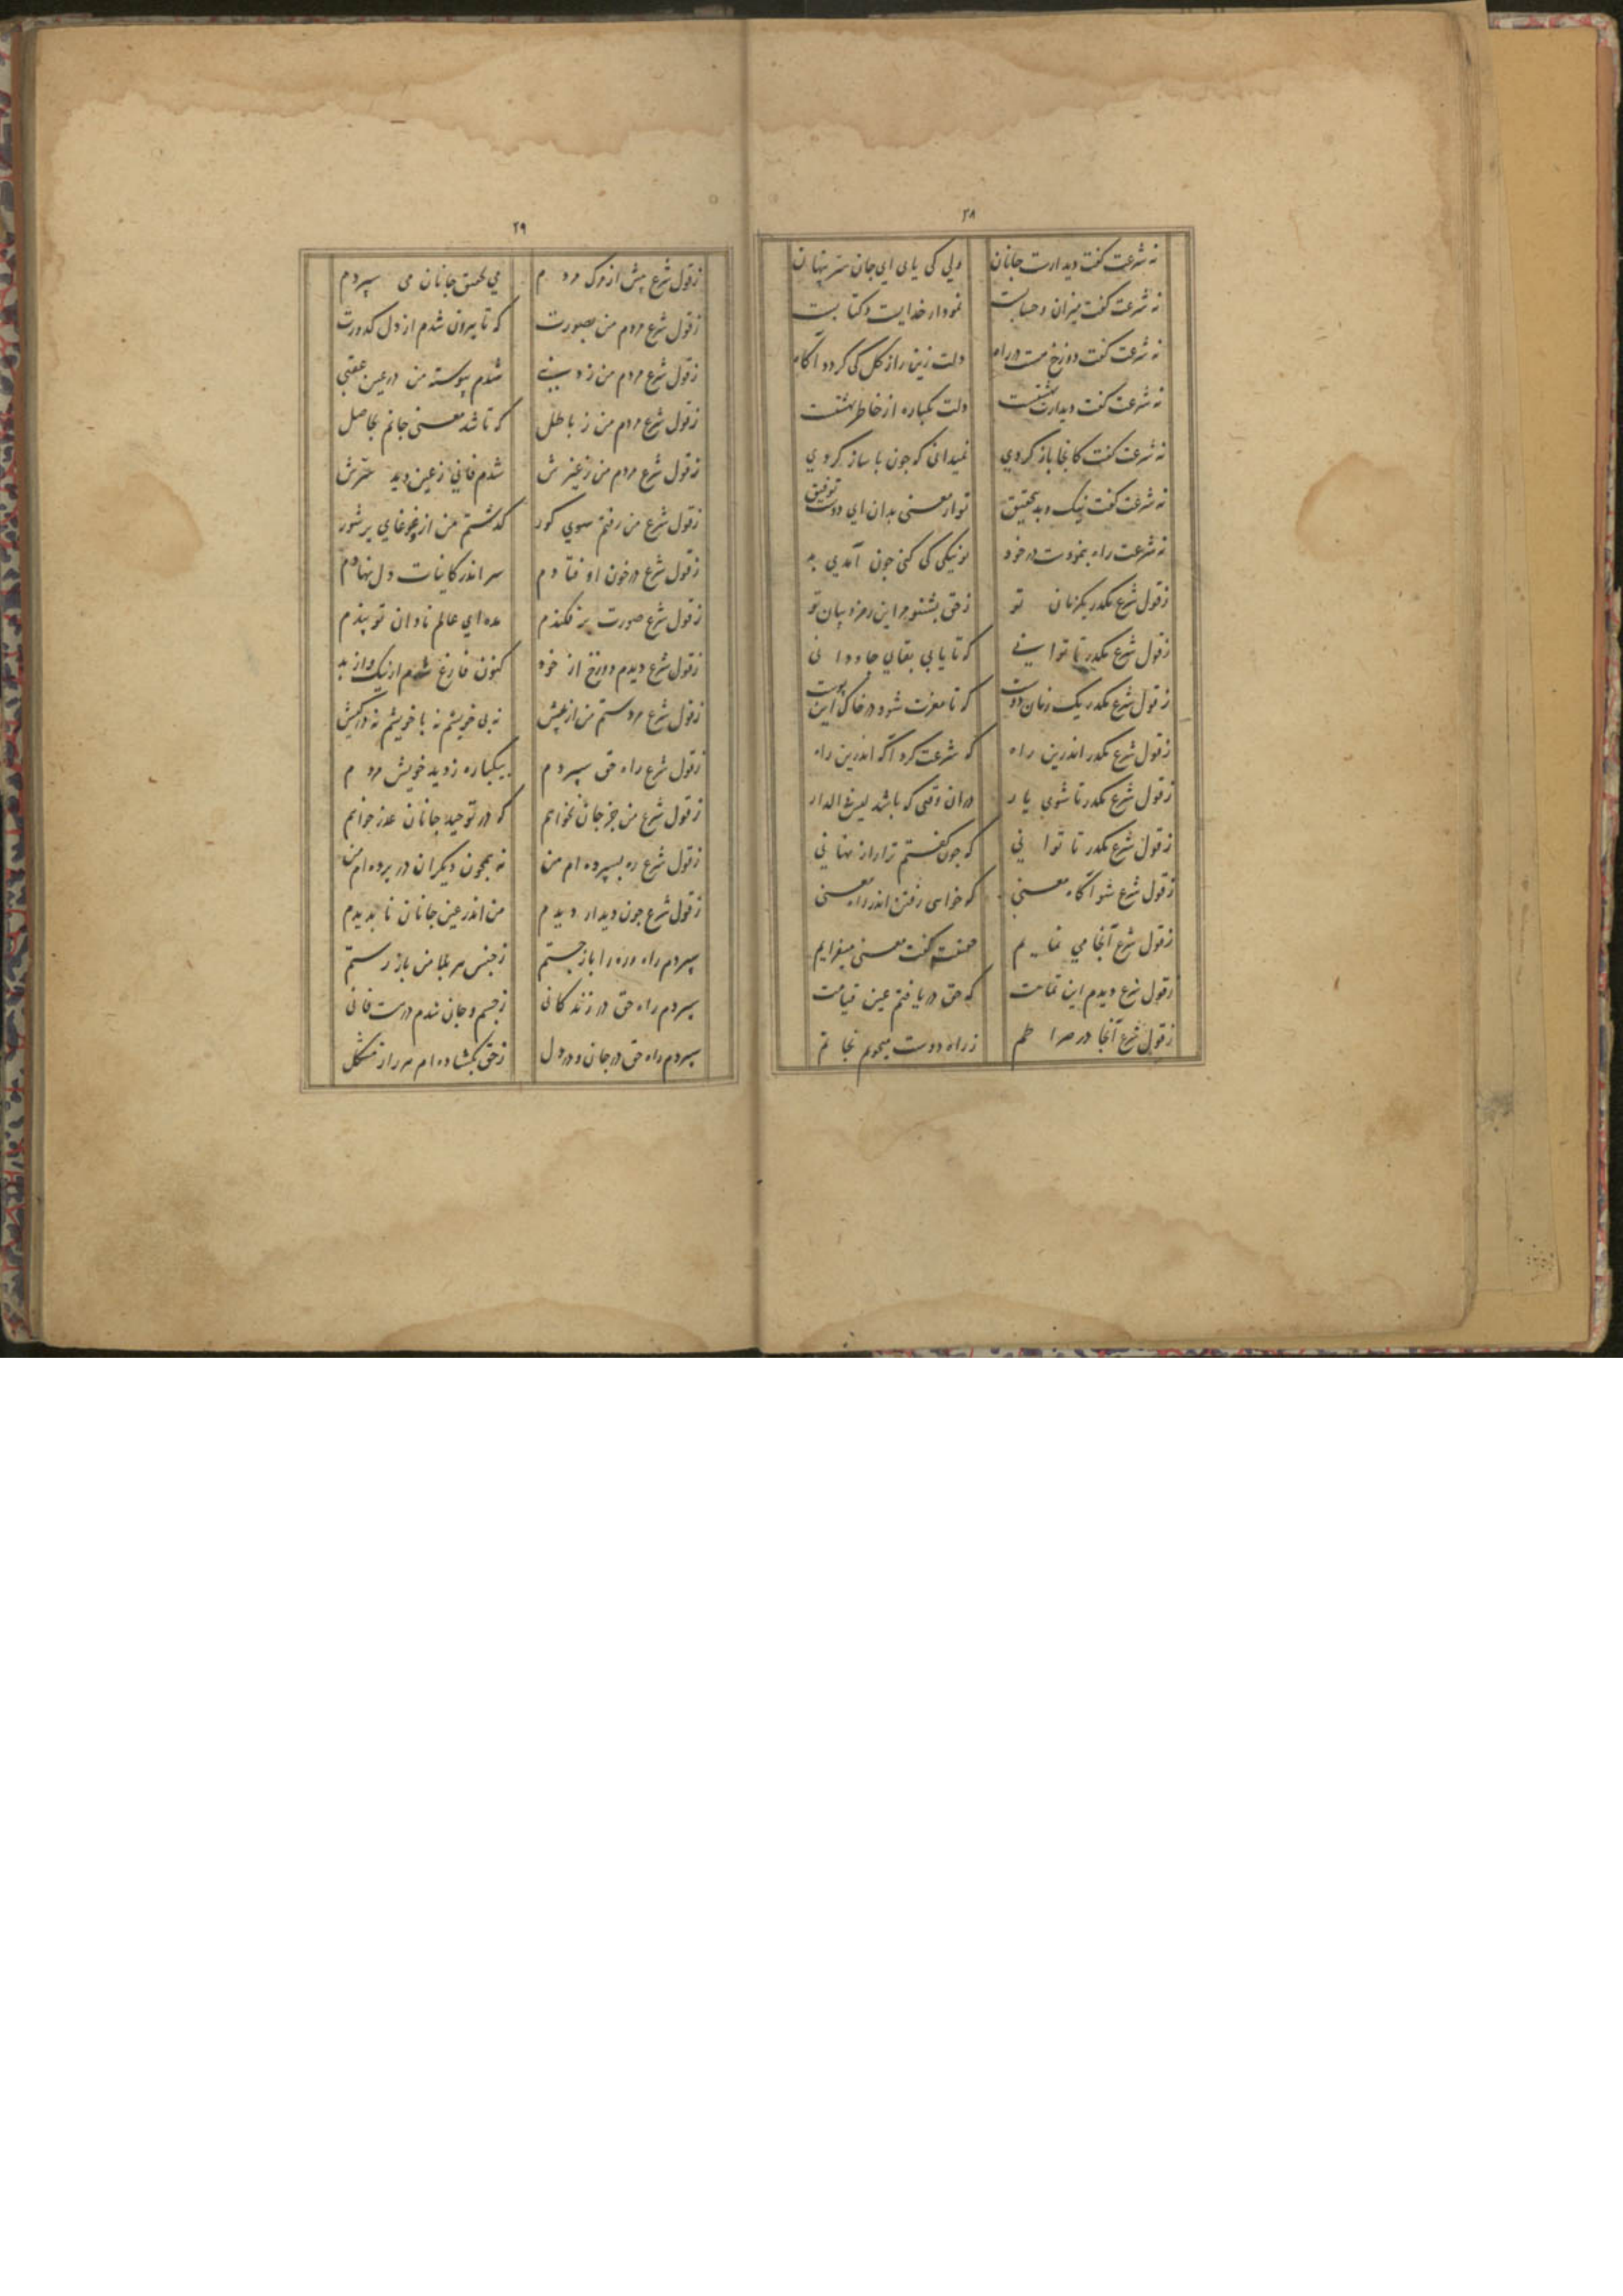 ۲۸
نه شرعت گفت دیدارت جانان ولی کی یابی ای جان سر پنهان
نه شرعت گفت میزان و حسابت نمودار خدایست و کتابت
نه شرعت گفت دوزخ هست در راه دلت زین راز کل کی گردد آگاه
نه شرعت گفت دیدارت بهشتست دلت یکباره از خاطر بهشتست
نه شرعت گفت کانجا باز گردی نمیدانی که جون با ساز گردی
نه شرعت گفت نیک و بد بتحقیق تو از معنی بدان ای دوست توفیق
نه شرعت راه بنمودست در خود تو نیکی کی کنی جون آمدی بد
ز قول شرع مگذر یکزمان تو ز حق بشنو مر این رمز و بیان تو
ز قول شرع مگذر تا توانی که تا یابی بقای جاودانی
ز قول شرع مگذر یک زمان دوست که تا مغزت شود در خاک این پوست
ز قول شرع مگذر اندرین راه که شرعت کرد آگه اندرین راه
ز قول شرع مگذر تا شوی یار در ان وقتی که باشد لیس فی الدار
ز قول شرع مگذر تا توانی که جون گفتم ترا راز نهانی
ز قول شرع شو آگاه معنی که خواهی رفتن اندر راه معنی
ز قول شرع آنجا می نمایم حقیقت گفت معنی میفزایم
ز قول شرع دیدم این تمامت که حق دریافتم عین قیامت
ز قول شرع آنجا در صراطم ز راه دوست میجویم نجاتم
۲۹
ز قول شرع پیش از مرگ مردم پی عشق جانان می سپردم
ز قول شرع مردم من بصورت که تا بیرون شدم از دل کدورت
ز قول شرع مردم من ز دنیی شدم پیوسته من در عین عقبی
ز قول شرع مردم من ز باطل که تا شد معنی جانم بحاصل
ز قول شرع مردم من ز غیرش شدم فانی ز عین دید سرش
ز قول شرع من رفتم سوی گور گذشتم من از غوغای پر شور
ز قول شرع در خون اوفتادم سر اندر کاینات دل نهادم
ز قول شرع صورت بر فکندم مده ای عالم نادان تو پندم
ز قول شرع دیدم دوزخ از خود کنون فارغ شدم از نیک و از بد
ز قول شرع مردستم من از پیش نه بی خویشم نه با خویشم نه در کیش
ز قول شرع راه حق سپردم بیکباره ز دید خویش مردم
ز قول شرع من جز جان نخوانم که در توحید جانان عذر خوانم
ز قول شرع ره بسپرده ام من نه همچون دیگران در پرده ام من
ز قول شرع جون دیدار دیدم من اندر عین جانان ناپدیدم
سپردم راه و ره را باز جستم ز جنس هر بلا من باز رستم
سپردم راه حق در زندگانی ز جسم و جان شدم در دست فانی
سپردم راه حق در جان و در دل ز حق بگشاده ام هر راز مشکل